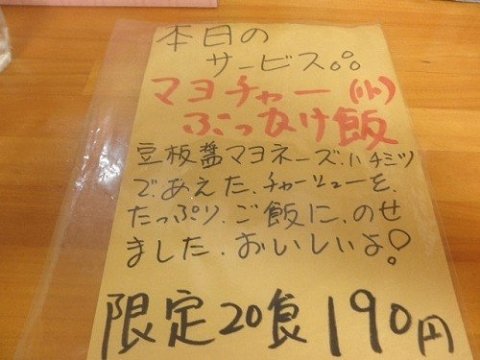 本日の
サービス
マヨチャー(小)
ぶっかけ飯
豆板醤マヨネーズ、ハチミツ
であえた、チャーシューを、
たっぷり、ご飯に、のせ
ました、おいしいよ!
限定20食190円